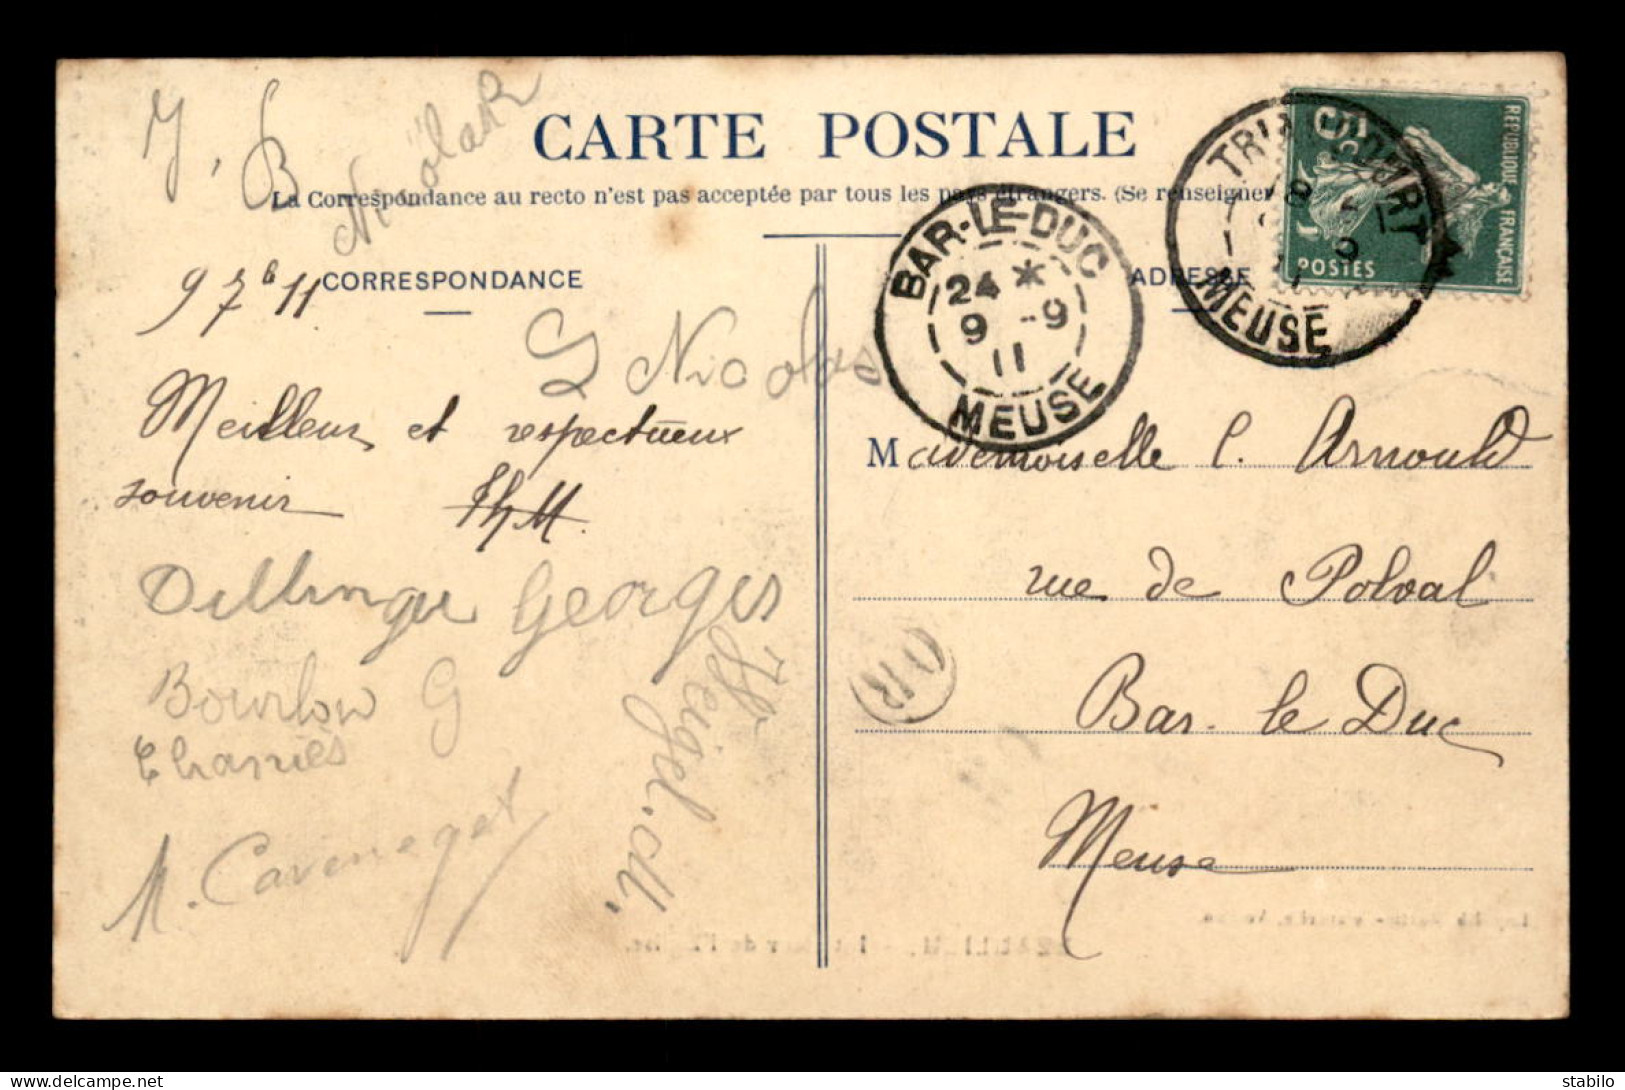 CARTE POSTALE
La Correspondance au recto n'est pas acceptée par tous les pays étrangers. (Se renseigner
J. B Nicolas
CORRESPONDANCE
ADRESSE
9 7b 11
S Nicolas
Meilleur et respectueux
souvenir ThM.
Dillinger Georges
Bourlon G
Charles
M.
Weigel. M.
BAR-LE-DUC
24 *
9 -9
11
MEUSE
TRIAUCOURT
9
11
MEUSE
REPUBLIQUE FRANÇAISE
POSTES
Mademoiselle C. Arnould
rue de Polval
Bar-le Duc
Meuse
OR
BEAULIEU. - Intérieur de l'Eglise.
stabilo